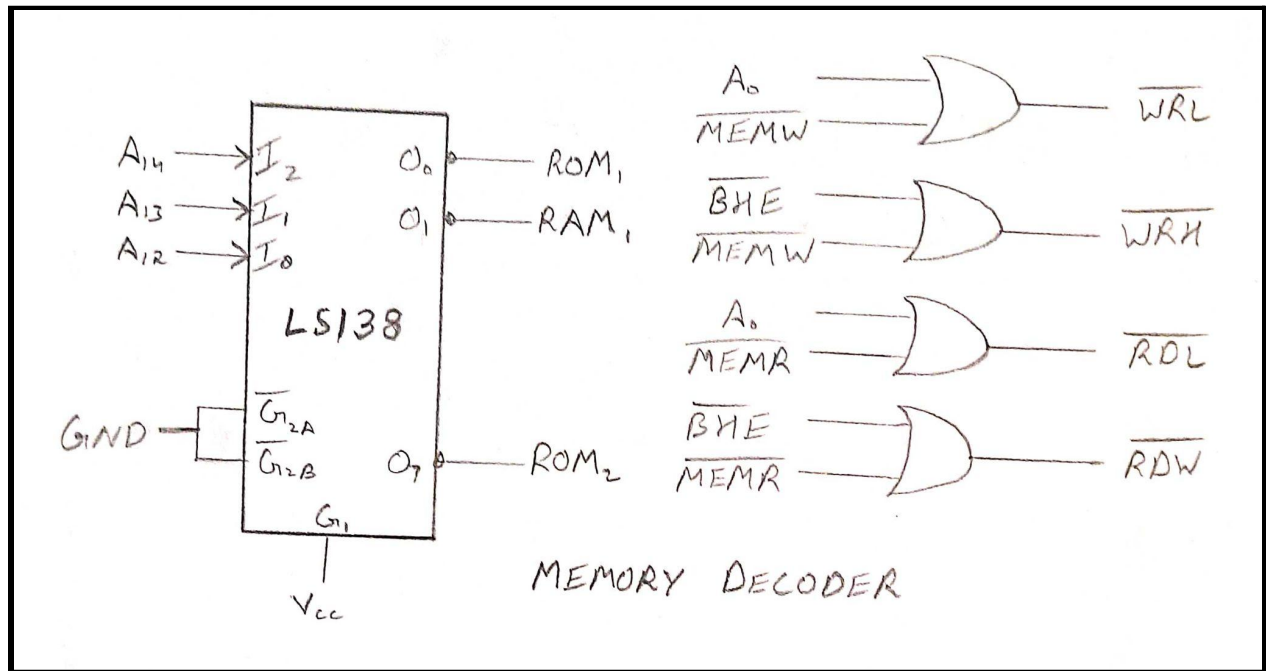 A₁₄ I₂ O₀ ROM₁
A₁₃ I₁ O₁ RAM₁
A₁₂ I₀
LS138
GND G̅₂A
G̅₂B O₇ ROM₂
G₁
Vcc
A₀
M̅E̅M̅W̅ W̅R̅L̅
B̅H̅E̅
M̅E̅M̅W̅ W̅R̅H̅
A₀
M̅E̅M̅R̅ R̅D̅L̅
B̅H̅E̅
M̅E̅M̅R̅ R̅D̅W̅
MEMORY DECODER